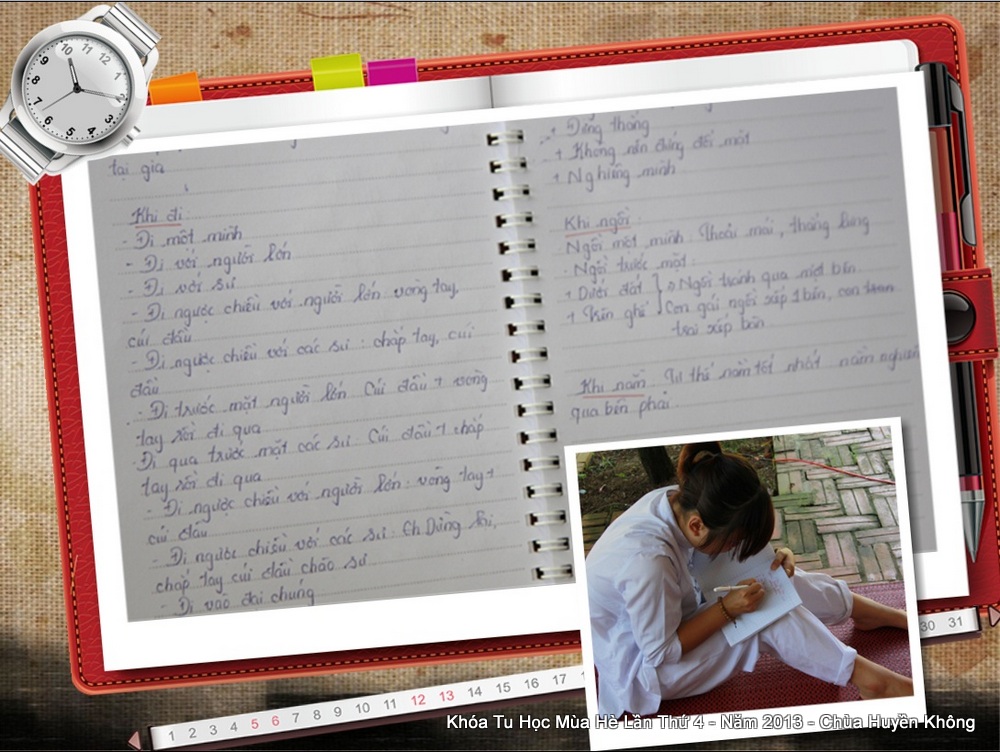 tại gia
Khi đi:
- Đi một mình
- Đi với người lớn
- Đi với sư
- Đi ngược chiều với người lớn: vòng tay,
cúi đầu
- Đi ngược chiều với các sư: chắp tay, cúi
đầu
- Đi trước mặt người lớn: Cúi đầu + vòng
tay rồi đi qua
- Đi qua trước mặt các sư: Cúi đầu + chắp
tay rồi đi qua
- Đi ngược chiều với người lớn: vòng tay +
cúi đầu
- Đi ngược chiều với các sư: Dừng lại,
chắp tay cúi đầu chào sư
- Đi vào đại chúng
+ Đứng thẳng
+ Không nên đứng đối mặt
+ Nghiêng mình
Khi ngồi:
Ngồi một mình: Thoải mái, thẳng lưng
- Ngồi trước mặt:
+ Dưới đất } Ngồi tránh qua một bên
+ Trên ghế } Con gái ngồi xếp 1 bên, con
trai xếp bàn
Khi nằm: Tư thế nằm tốt nhất nằm nghiêng
qua bên phải
10 11 12 1 3 4 5 6 7 8 9
1 2 3 4 5 6 7 8 9 10 11 12 13 14 15 16 17 30 31
Khóa Tu Học Mùa Hè Lần Thứ 4 - Năm 2013 - Chùa Huyền Không